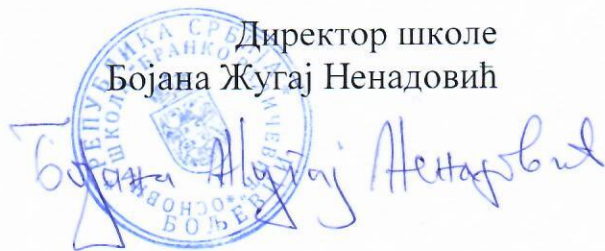 Директор школе
Бојана Жугај Ненадовић
РЕПУБЛИКА СРБИЈА
ОСНОВНА ШКОЛА
БОЉЕВЦИ
Бојана Жугај Ненадовић